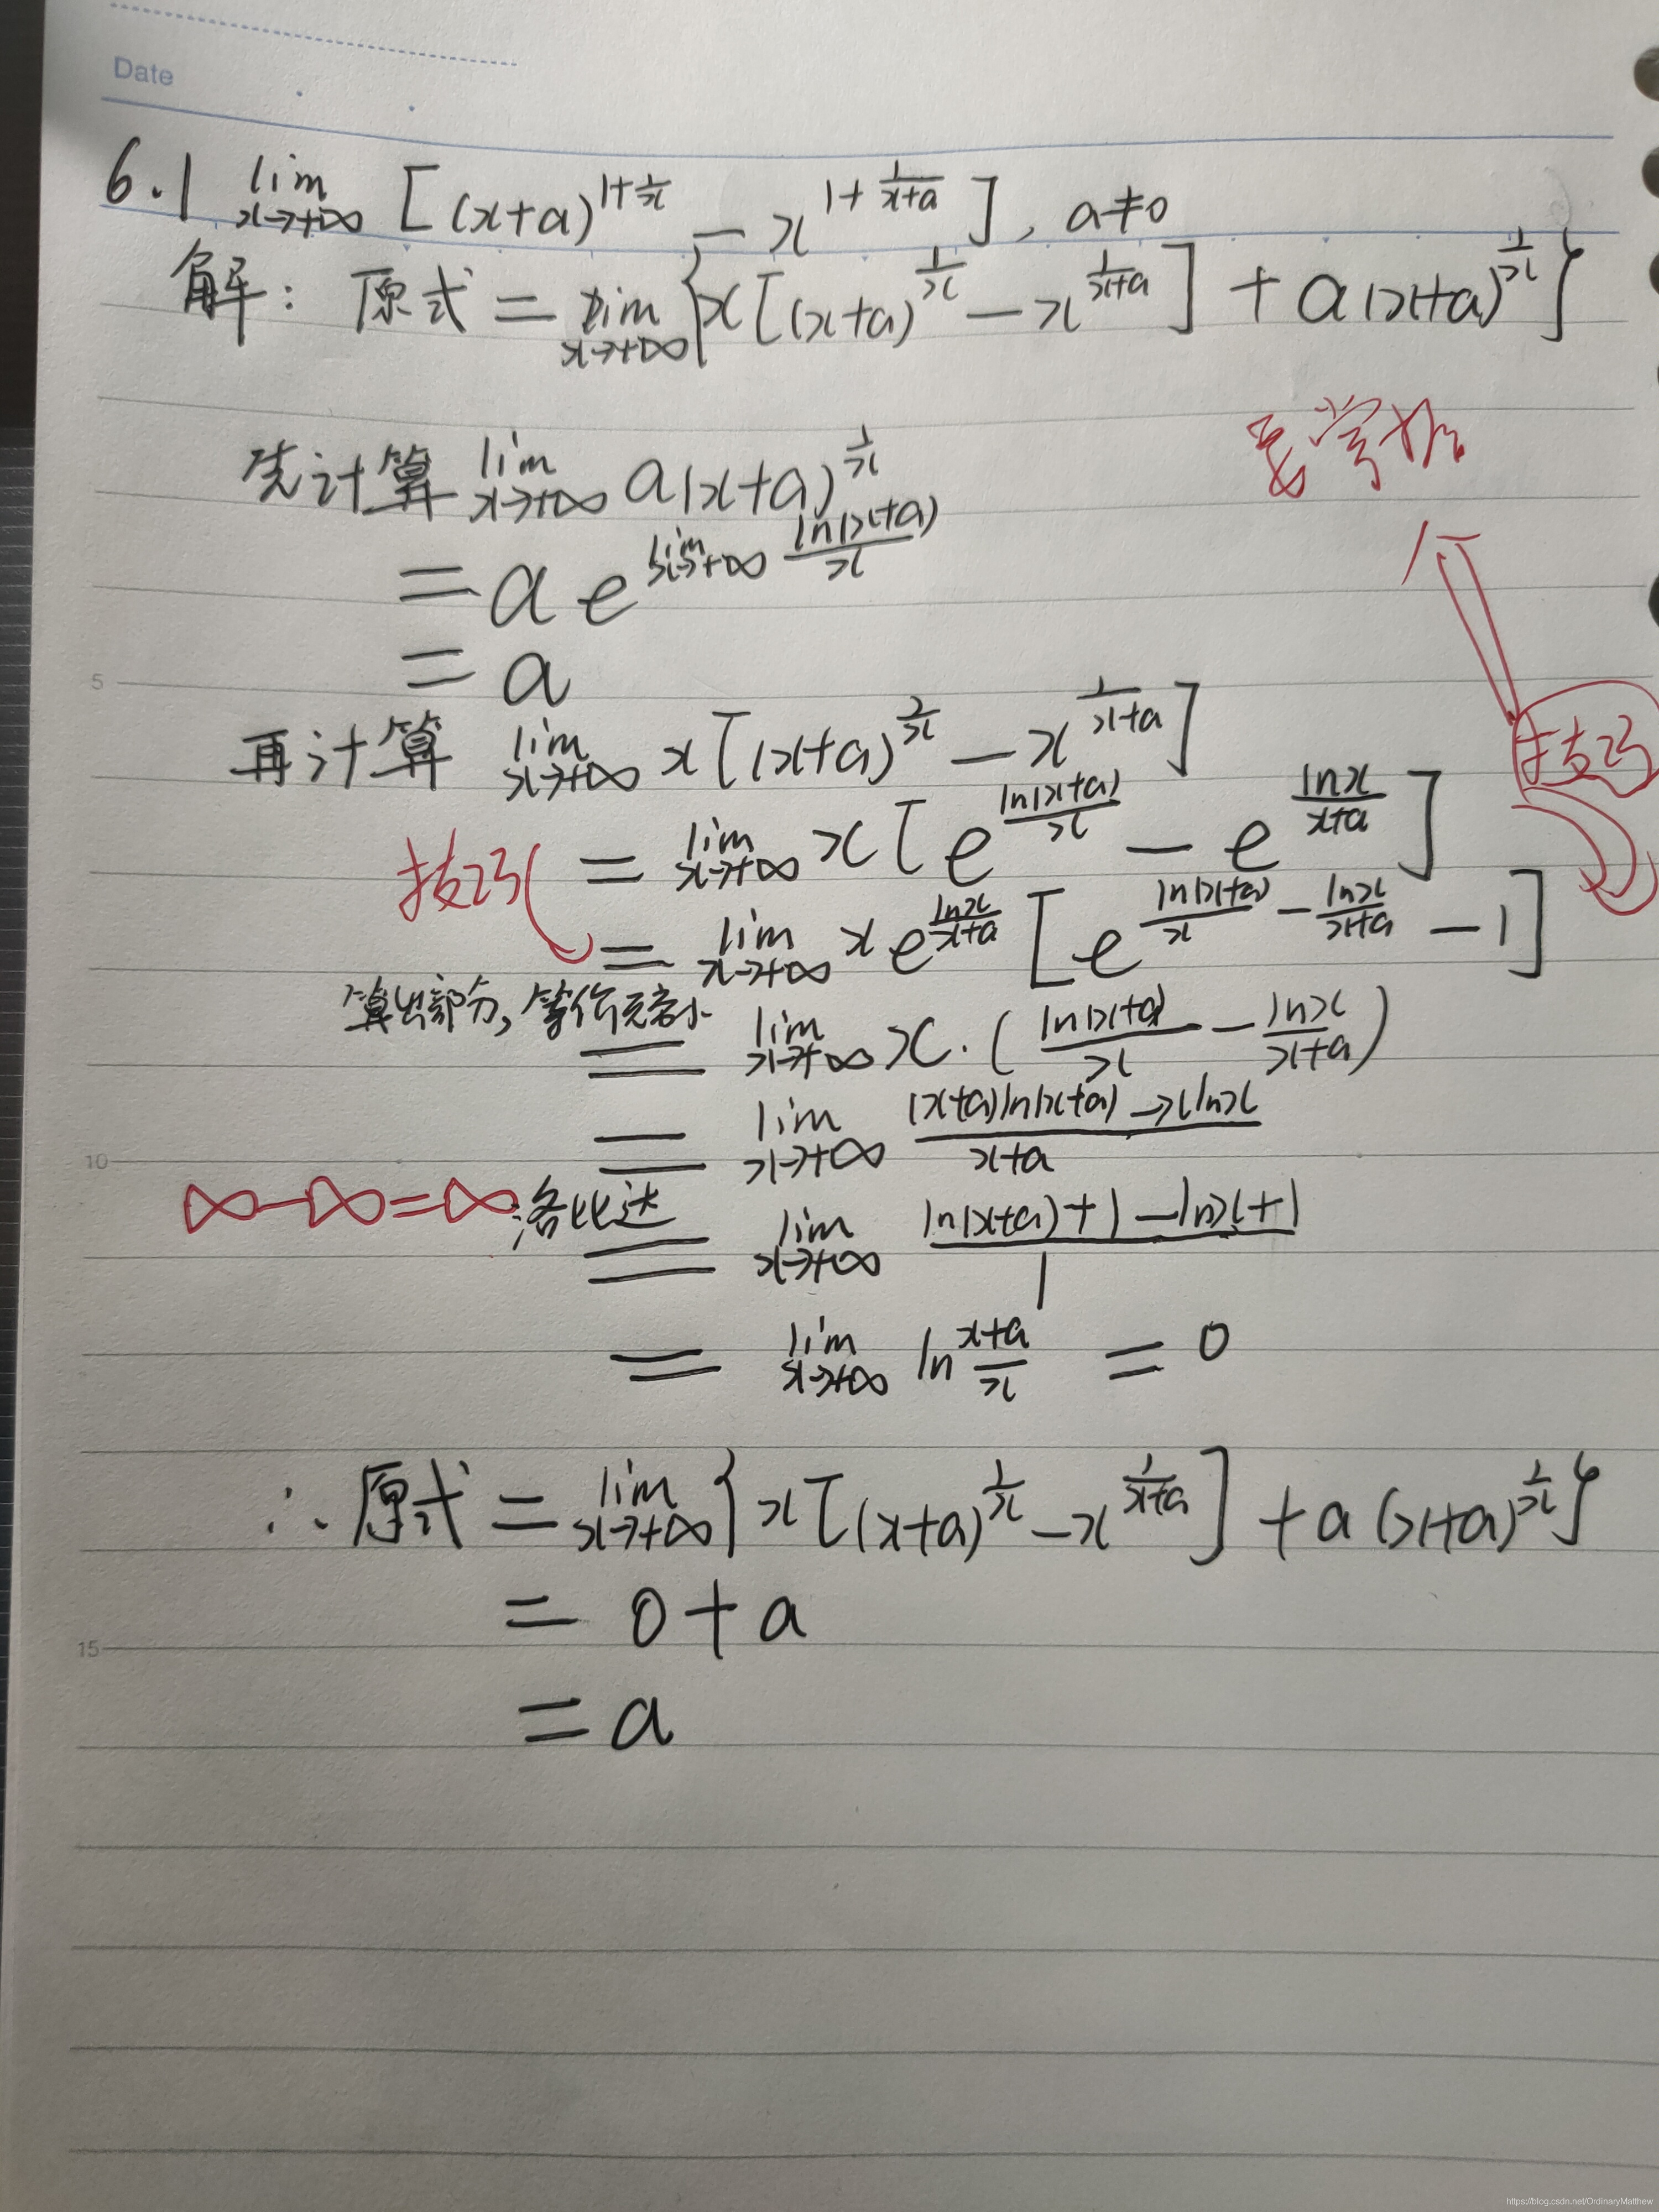 Date
6.1 lim x→+∞ [(x+a)^(1+1/x) - x^(1+1/(x+a))], a≠0
解: 原式 = lim x→+∞ {x[(x+a)^(1/x) - x^(1/(x+a))] + a(x+a)^(1/x)}
先计算 lim x→+∞ a(x+a)^(1/x)
= a e^(lim x→+∞ ln(x+a)/x)
5
= a
再计算 lim x→+∞ x[(x+a)^(1/x) - x^(1/(x+a))]
技巧
技巧 = lim x→+∞ x[e^(ln(x+a)/x) - e^(lnx/(x+a))]
= lim x→+∞ x e^(lnx/(x+a)) [e^(ln(x+a)/x - lnx/(x+a)) - 1]
算出部分, 等价无穷小
= lim x→+∞ x·(ln(x+a)/x - lnx/(x+a))
= lim x→+∞ ((x+a)ln(x+a) - xlnx)/(x+a)
10
∞-∞=∞ 洛比达 = lim x→+∞ (ln(x+a)+1-lnx+1)/1
= lim x→+∞ ln (x+a)/x = 0
∴ 原式 = lim x→+∞ {x[(x+a)^(1/x) - x^(1/(x+a))] + a(x+a)^(1/x)}
= 0+a
15
= a
https://blog.csdn.net/OrdinaryMatthew